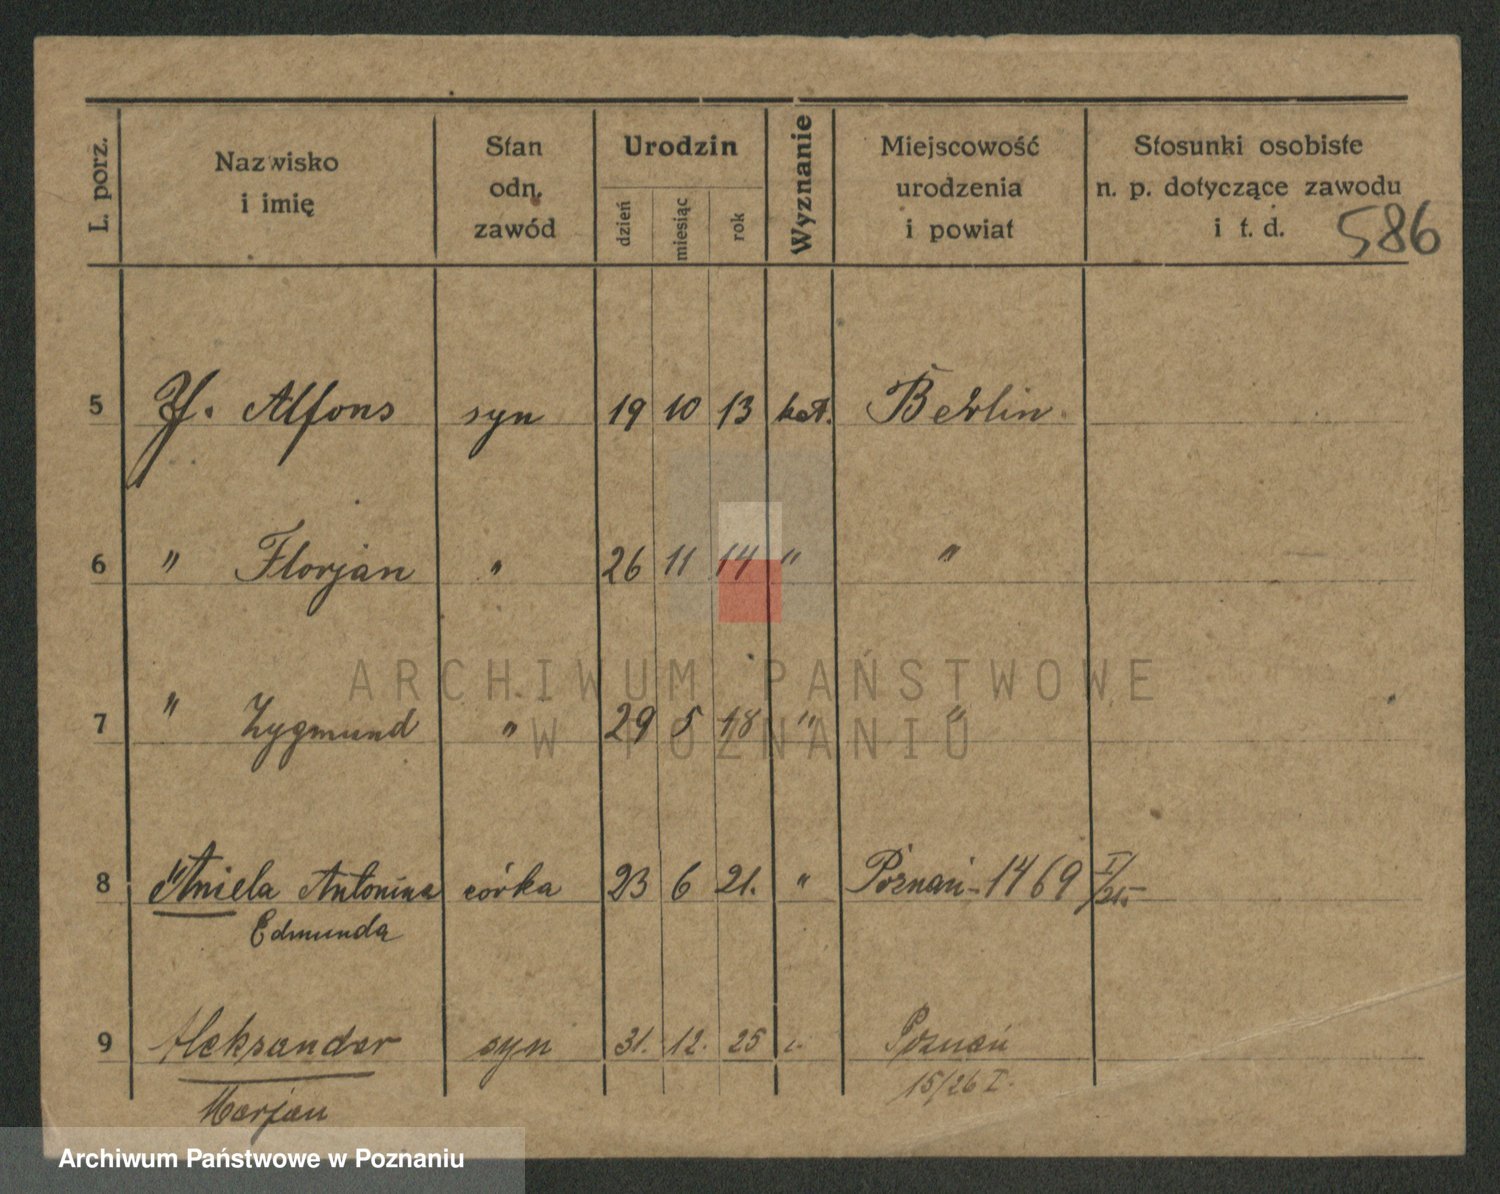 L. porz.
Nazwisko
i imię
Stan
odn.
zawód
Urodzin
dzień
miesiąc
rok
Wyznanie
Miejscowość
urodzenia
i powiat
Stosunki osobiste
n. p. dotyczące zawodu
i t. d.
586
5 Alfons syn 19 10 13 kat. Berlin.
6 " Florjan " 26 11 14 " "
7 " Zygmund " 29 5 18 " "
8 " Aniela Antonina córka 23 6 21. " Poznań - 1469 I/21.
Edmunda
9 Aleksander syn 31. 12. 25 Poznań
Marjan 15/26 I.
ARCHIWUM PAŃSTWOWE
W POZNANIU
Archiwum Państwowe w Poznaniu